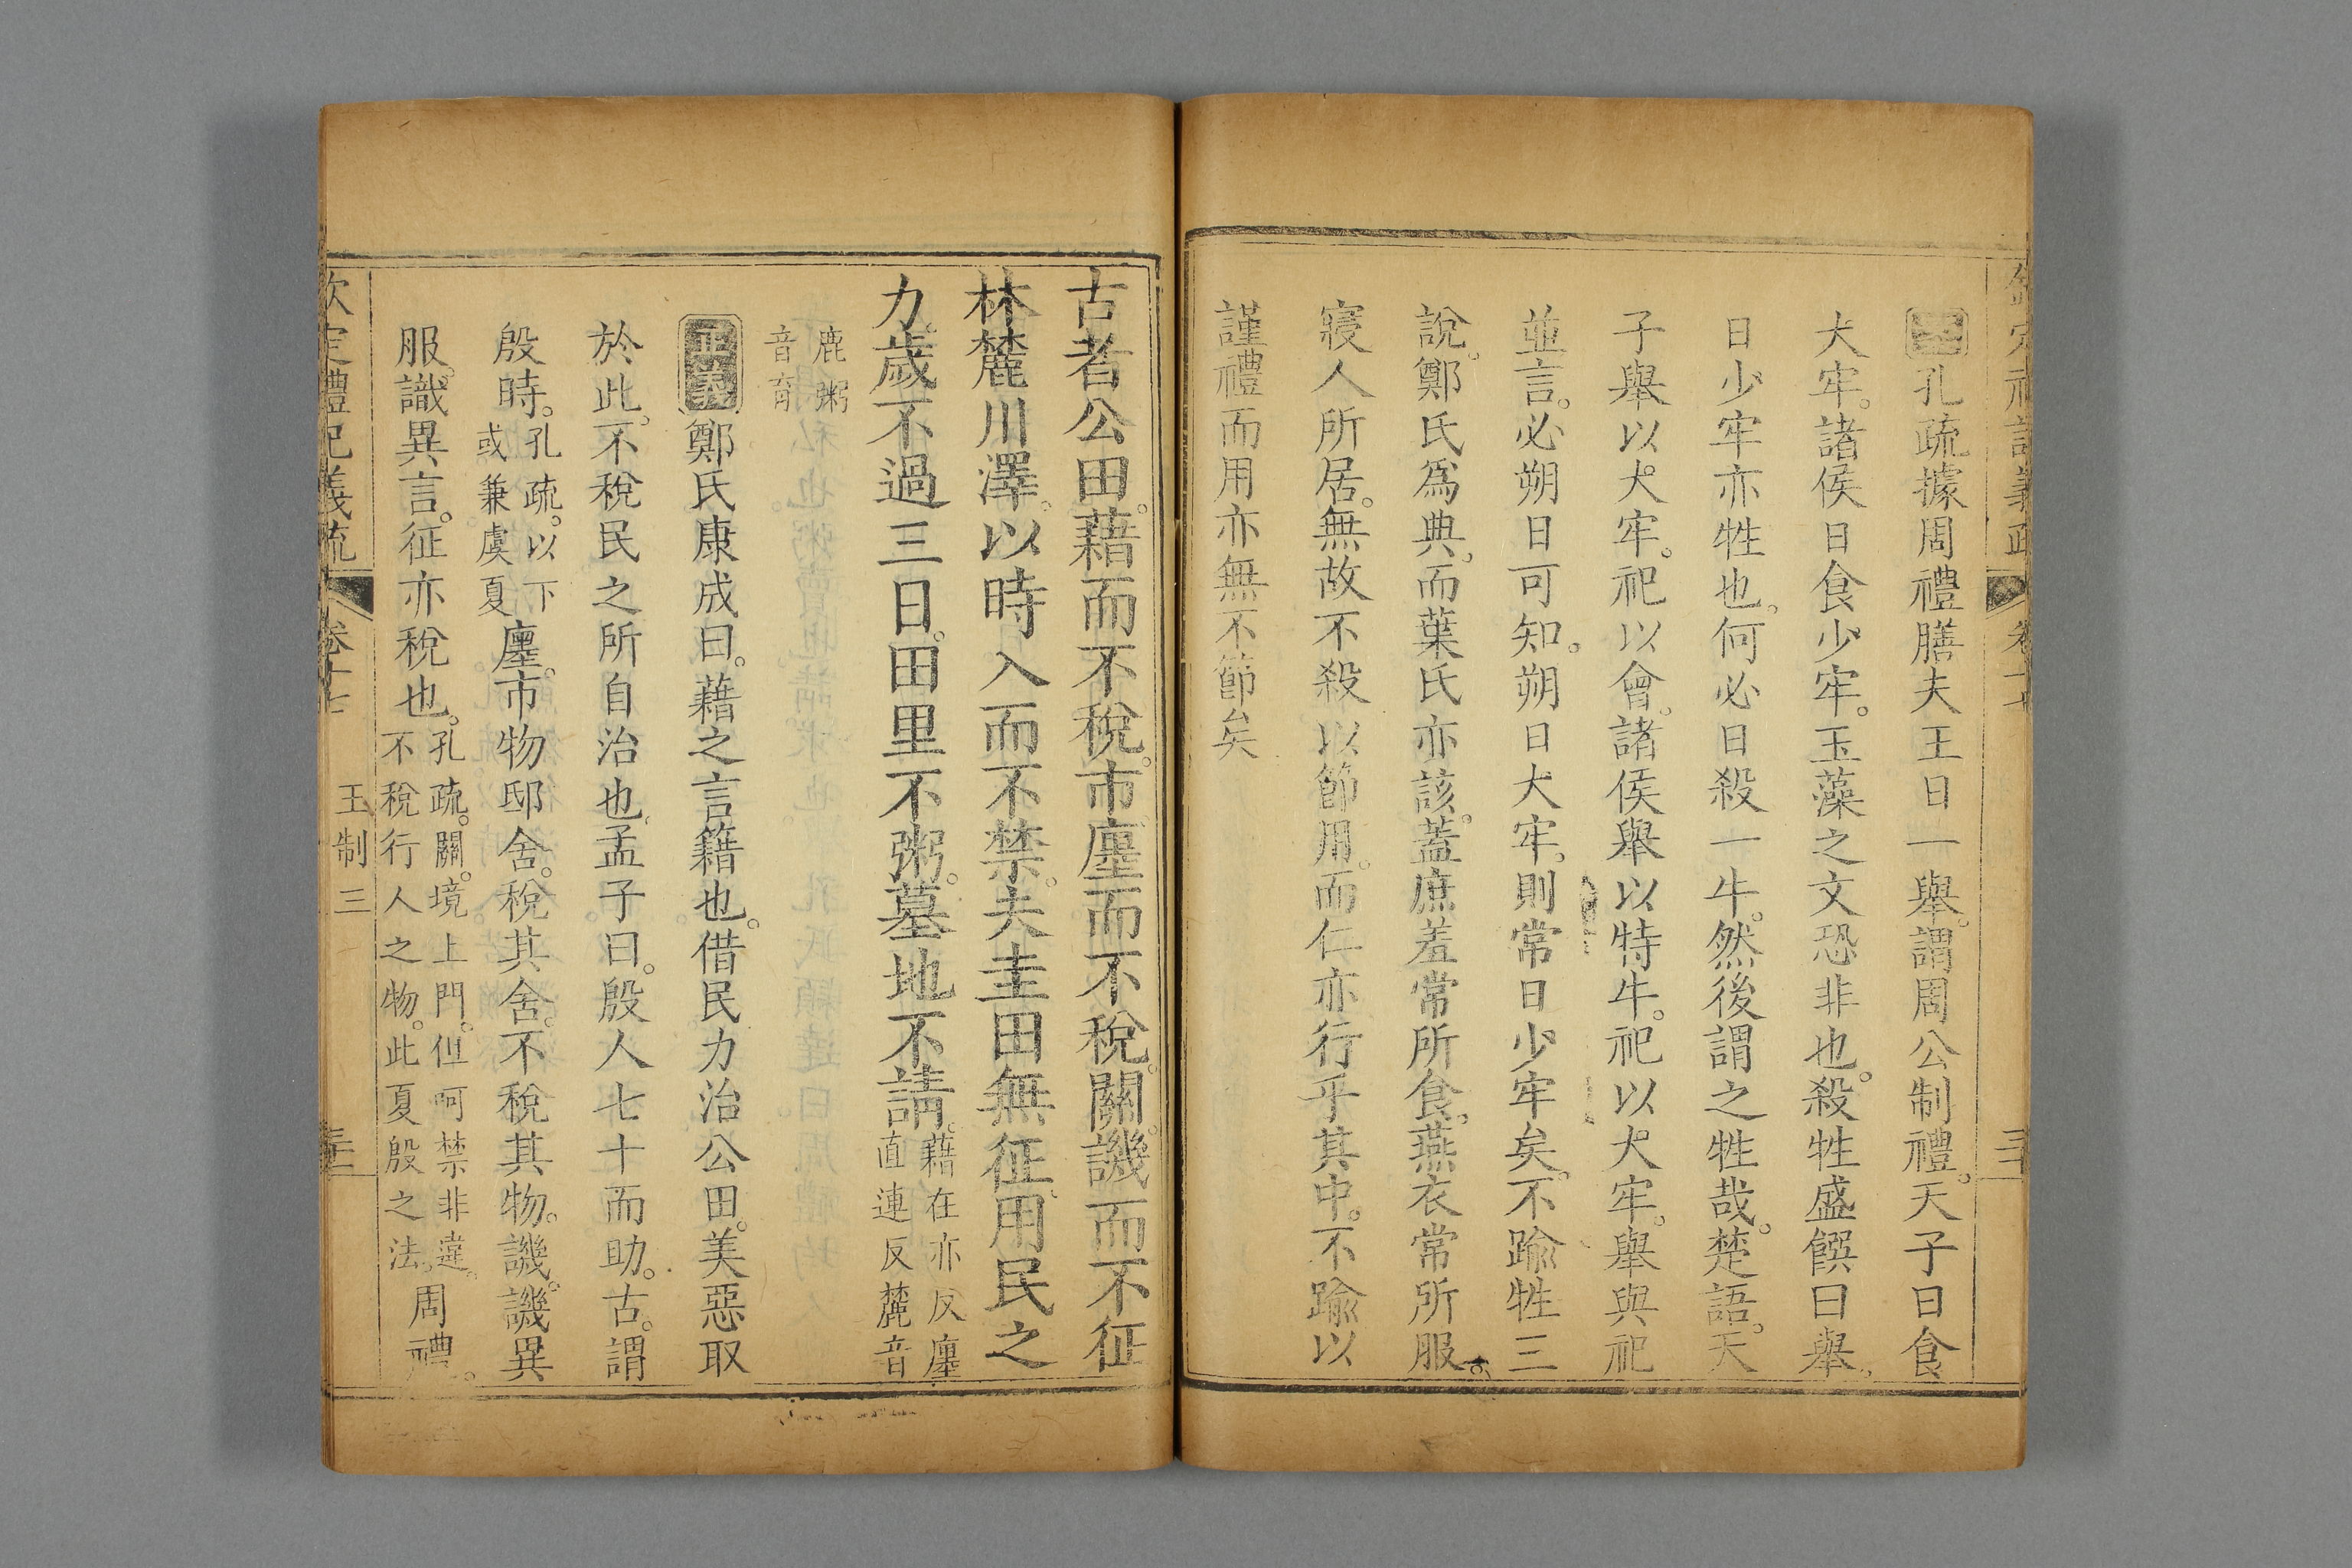 孔疏據周禮膳夫王日一舉。謂周公制禮。天子日食
大牢。諸侯日食少牢。玉藻之文恐非也。殺牲盛饌曰舉。
日少牢亦牲也。何必日殺一牛。然後謂之牲哉。楚語。天
子舉以大牢。祀以會。諸侯舉以特牛。祀以大牢。舉與祀
並言。必朔日可知。朔日大牢。則常日少牢矣。不踰牲三
說。鄭氏為典。而葉氏亦該。蓋庶羞常所食。燕衣常所服。
寢人所居。無故不殺以節用。而仁亦行乎其中。不踰以
謹禮而用亦無不節矣
古者公田。藉而不稅。市廛而不稅。關譏而不征
林麓川澤。以時入而不禁。夫圭田無征。用民之
力歲不過三日。田里不粥。墓地不請。藉在亦反廛
直連反麓音
鹿粥
音育
正義鄭氏康成曰。藉之言籍也。借民力治公田。美惡取
於此。不稅民之所自治也。孟子曰。殷人七十而助。古。謂
殷時。孔疏。以下
或兼虞夏廛。市物邸舍。稅其舍。不稅其物。譏。譏異
服。識異言。征亦稅也。孔疏。關。境上門。但呵禁非違。
不稅行人之物。此夏殷之法。周禮。
欽定禮記義疏 卷十七 王制三